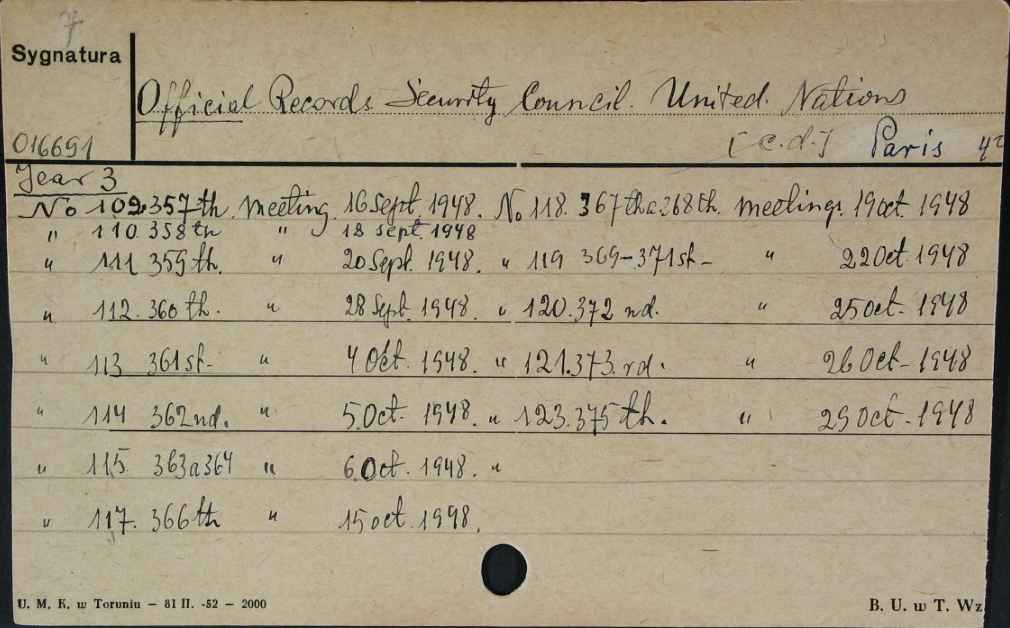 7
Sygnatura
Official Records Security Council. United. Nations
016691 [c.d.] Paris
Year 3
No 109.357th. meeting. 16 Sept. 1948. No 118. 367th a 368th. meetings. 19 oct. 1948
" 110 358th " 18 sept. 1948
" 111 359th. " 20 Sept. 1948. " 119 369-371st- " 22 Oct 1948
" 112. 360th. " 28 Sept. 1948. " 120.372 nd. " 25 oct- 1948
" 113 361st- " 4 Oct. 1948. " 121.373.rd. " 26 Oct- 1948
" 114 362nd. " 5.Oct- 1948. " 123.375th. " 29 Oct- 1948
" 115. 363 a 364 " 6.Oct. 1948. "
" 117. 366th " 15 oct. 1948.
U. M. K. w Toruniu – 81 II. -52 – 2000 B. U. w T. Wz